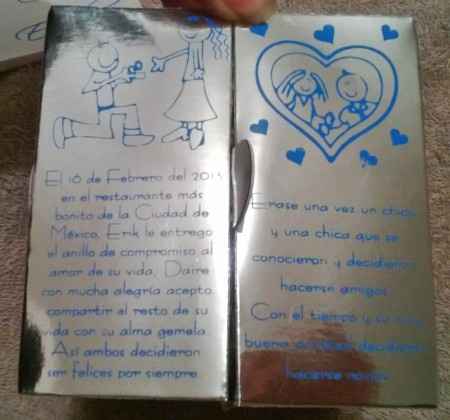 El 16 de Febrero del 2013
en el restaurante más
bonito de la Ciudad de
México, Erik le entrego
el anillo de compromiso al
amor de su vida, Daire
con mucha alegría acepto
compartir el resto de su
vida con su alma gemela
Así ambos decidieron
ser felices por siempre
Erase una vez un chico
y una chica que se
conocieron y decidieron
hacerse amigos
Con el tiempo y su
buena decidieron
hacerse novios